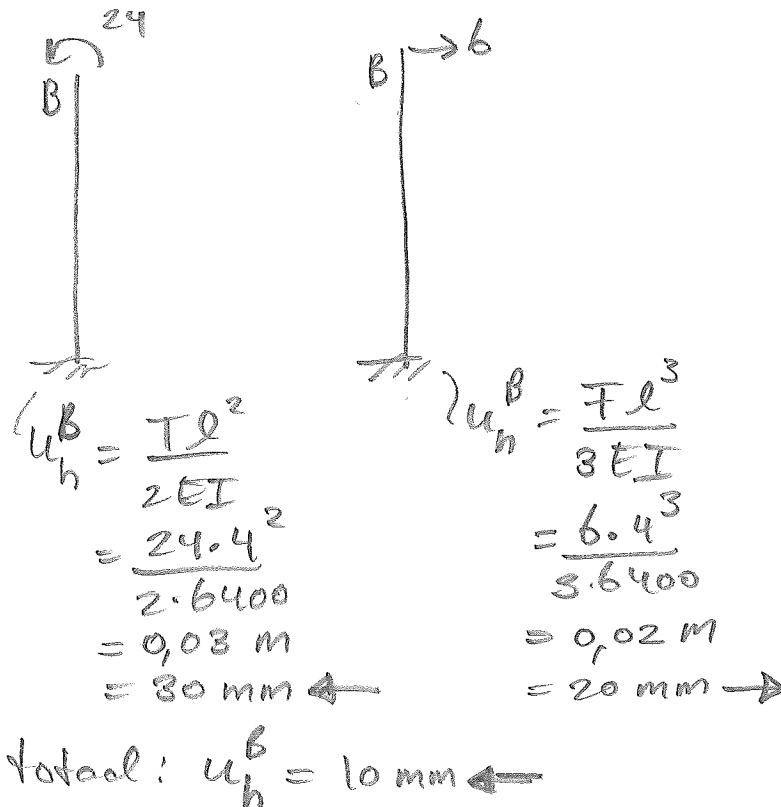 24
B
u_h^B = Tl²/2EI
= 24·4²/2·6400
= 0,03 m
= 30 mm ←
B → 6
u_h^B = Fl³/3EI
= 6·4³/3·6400
= 0,02 m
= 20 mm →
totaal: u_h^B = 10 mm ←